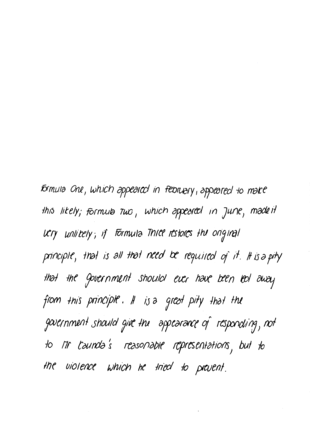 Formula One, which appeared in February, appeared to make
this likely; Formula Two, which appeared in June, made it
very unlikely; if Formula Three restores the original
principle, that is all that need be required of it. It is a pity
that the government should ever have been led away
from this principle. It is a great pity that the
government should give the appearance of responding, not
to Mr Kaunda's reasonable representations, but to
the violence which he tried to prevent.